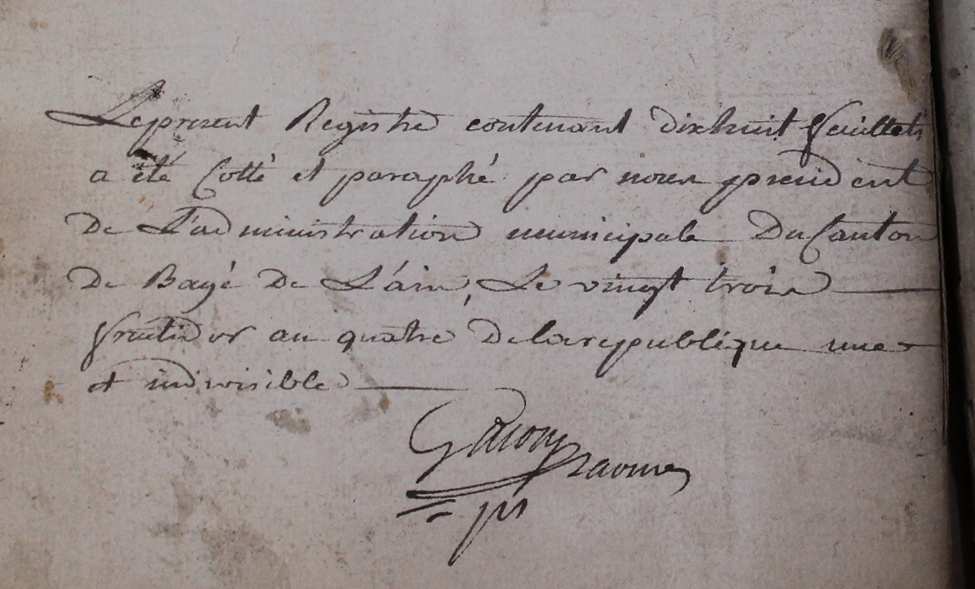 Le present Registre contenant dixhuit feuillets
a été Cotté et paraphé par nous president
De L'administration municipale Du Canton
De Bagé De L'ain, Le vingt trois
fructidor an quatre De la republique une
et indivisible